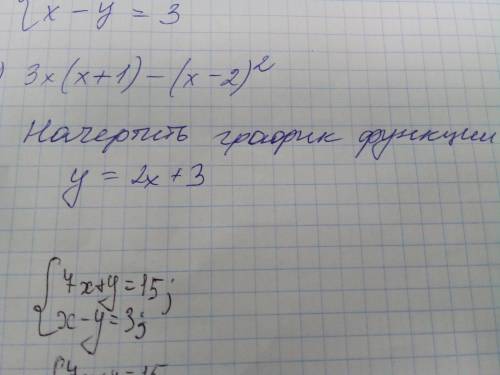 { x - y = 3
) 3x(x+1) - (x-2)²
Начертить график функции
y = 2x + 3
{ 7x+y=15;
x-y=3;